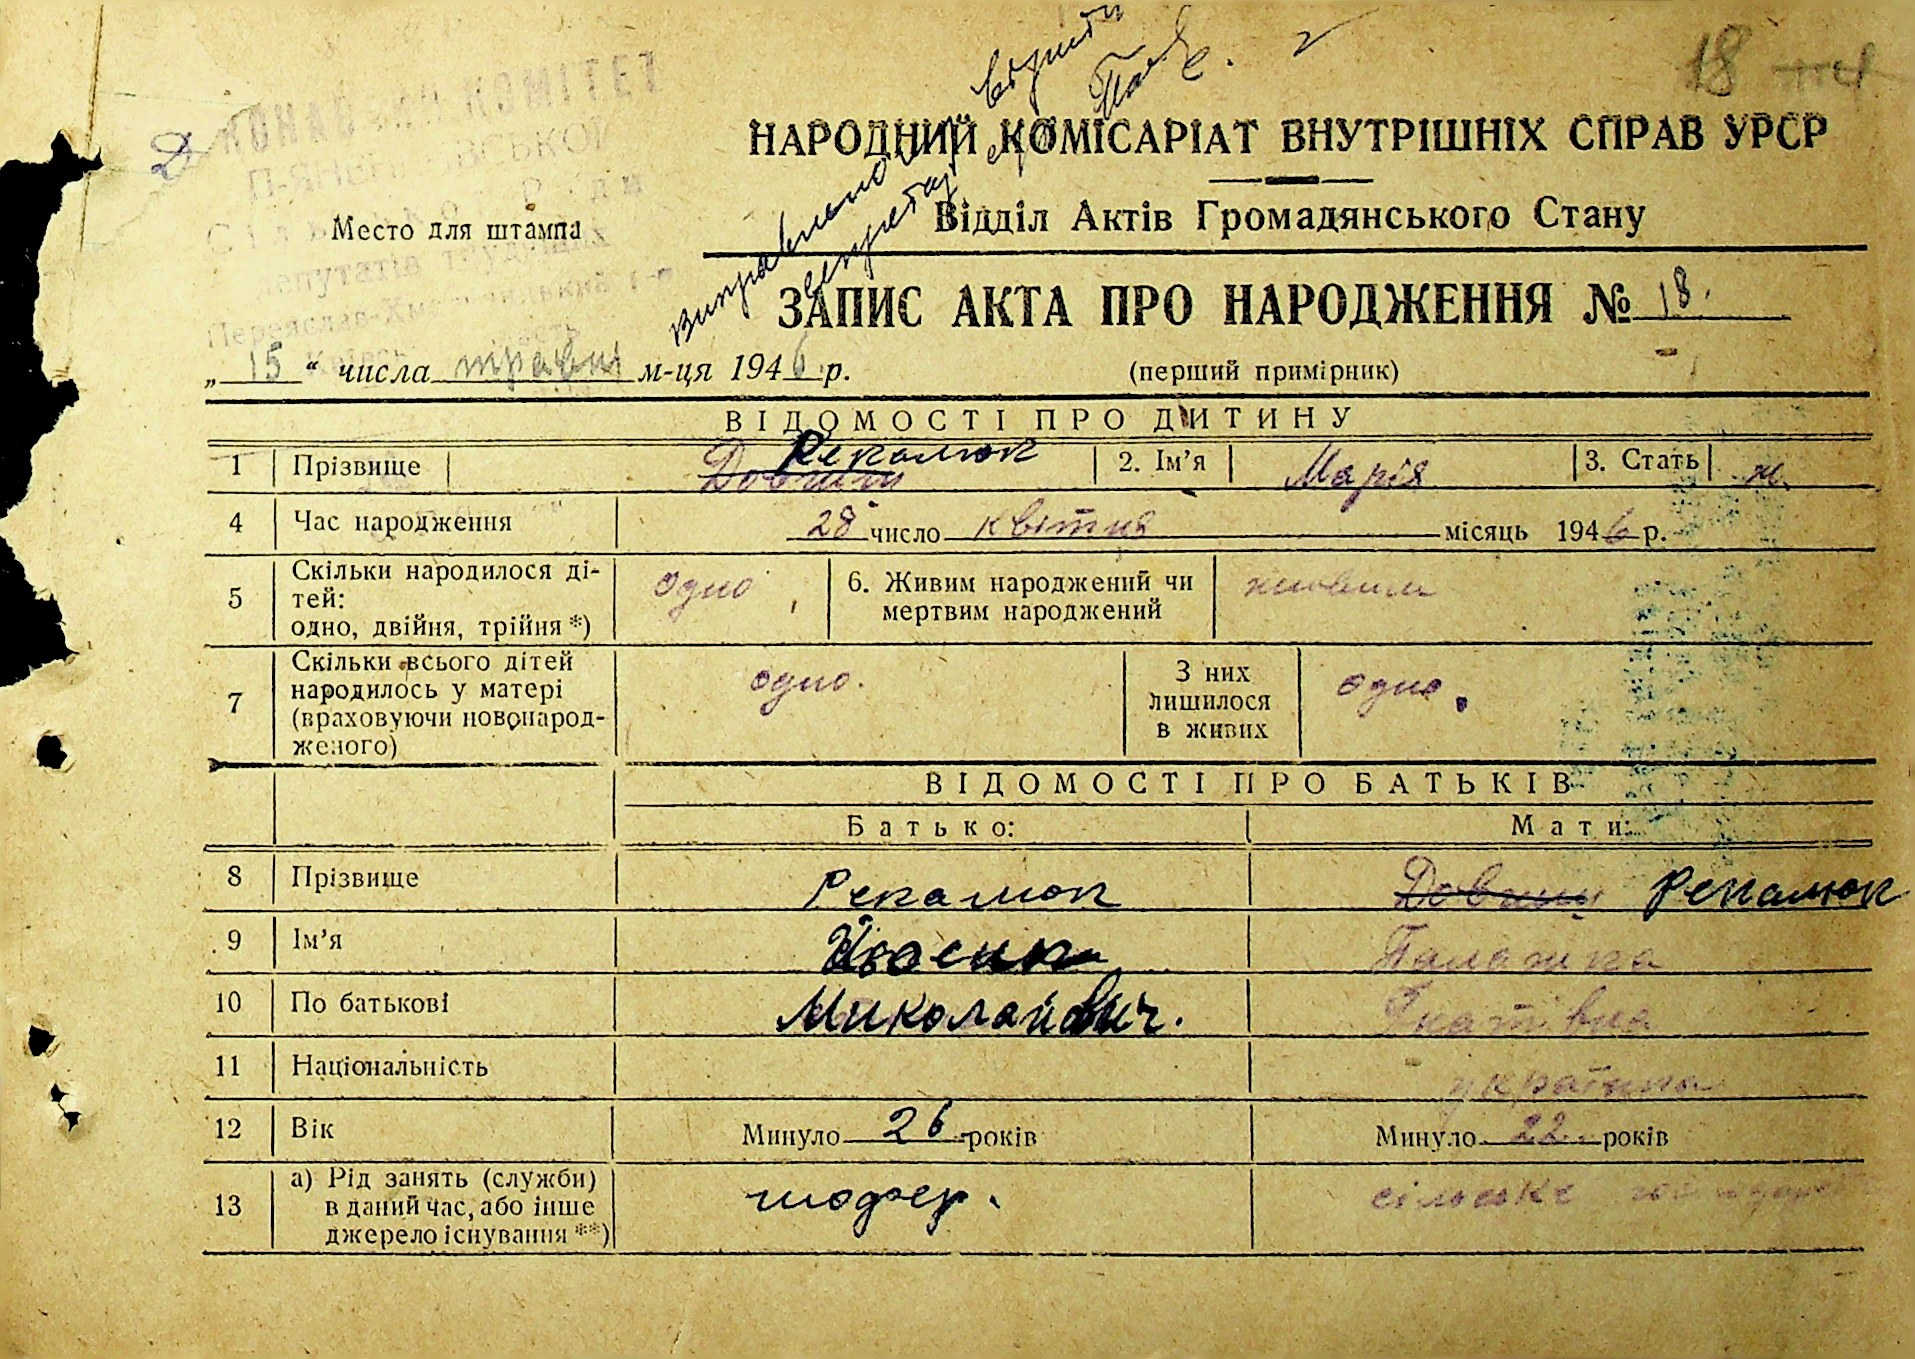 18
КОМІТЕТ
НАРОДНИЙ КОМІСАРІАТ ВНУТРІШНІХ СПРАВ УРСР
Место для штампа
Відділ Актів Громадянського Стану
виправленому вірити
ЗАПИС АКТА ПРО НАРОДЖЕННЯ № 18.
„15“ числа травня м-ця 1946 р. (перший примірник)
ВІДОМОСТІ ПРО ДИТИНУ
1 Прізвище Рекалюк 2. Ім’я Марія 3. Стать ж.
4 Час народження 28 число квітня місяць 1946 р.
5 Скільки народилося ді-
тей:
одно, двійня, трійня *) одно 6. Живим народжений чи
мертвим народжений живим
7 Скільки всього дітей
народилось у матері
(враховуючи новонарод-
женого) одно. З них
лишилося
в живих одно.
ВІДОМОСТІ ПРО БАТЬКІВ
Батько: Мати:
8 Прізвище Рекалюк Рекалюк
9 Ім’я Палажка
10 По батькові Миколайович. Гнатівна
11 Національність українка
12 Вік Минуло 26 років Минуло 22 років
13 а) Рід занять (служби)
в даний час, або інше
джерело існування **) шофер. сільське